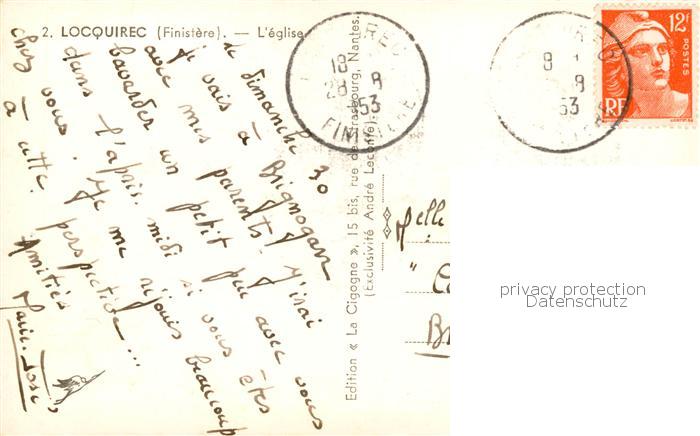 2. LOCQUIREC (Finistère). — L'église
le dimanche 30
je vais à Brignogan
avec mes parents. J'irai
bavarder un petit peu avec vous
dans l'après-midi si vous êtes
chez vous. Je me réjouis beaucoup
à cette perspective...
Amitiés
Marie-José
Edition « La Cigogne », 15 bis, rue de Strasbourg, Nantes.
(Exclusivité André Leconte).
18
28 8
53
FINISTERE
8
8
53
12F
POSTES
RF
Melle
privacy protection
Datenschutz